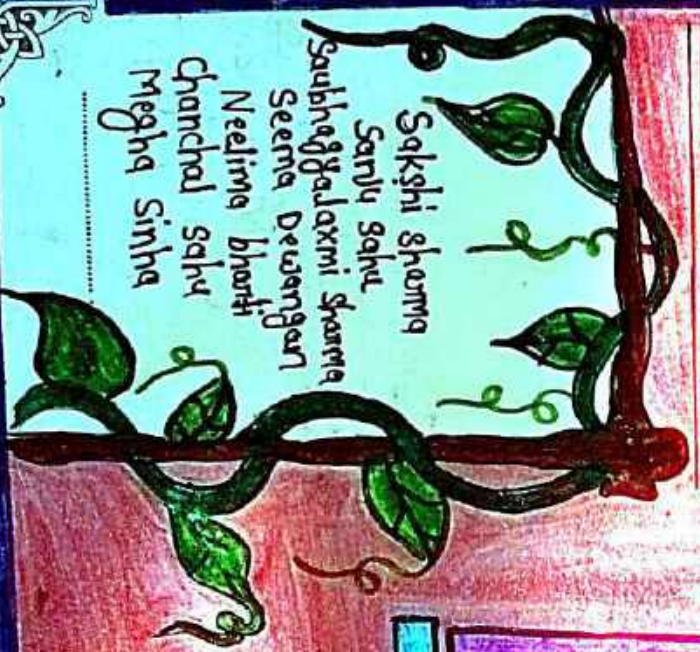 Sakshi Sharma
Sanju Sahu
Saubhagyalaxmi Sharma
Seema Dewangan
Neelima bharti
Chanchal Sahu
Megha Sinha